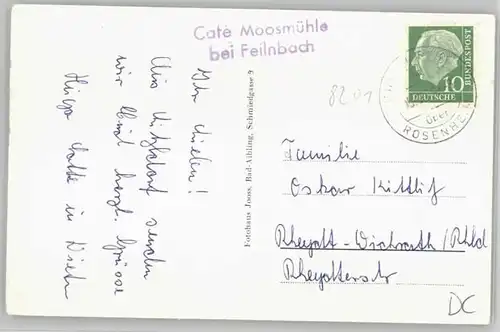 Café Moosmühle
bei Feilnbach
8201
10
DEUTSCHE
BUNDESPOST
über
ROSENHEIM
Ihr Lieben!
Aus senden
wir Euch herzl. Grüsse
in
Fotohaus Jooss, Bad-Aibling, Schmiedgasse 9
Familie
Oskar Kittlif
Rheydt-Wickrath/Rhld
Rheydterstr
DC